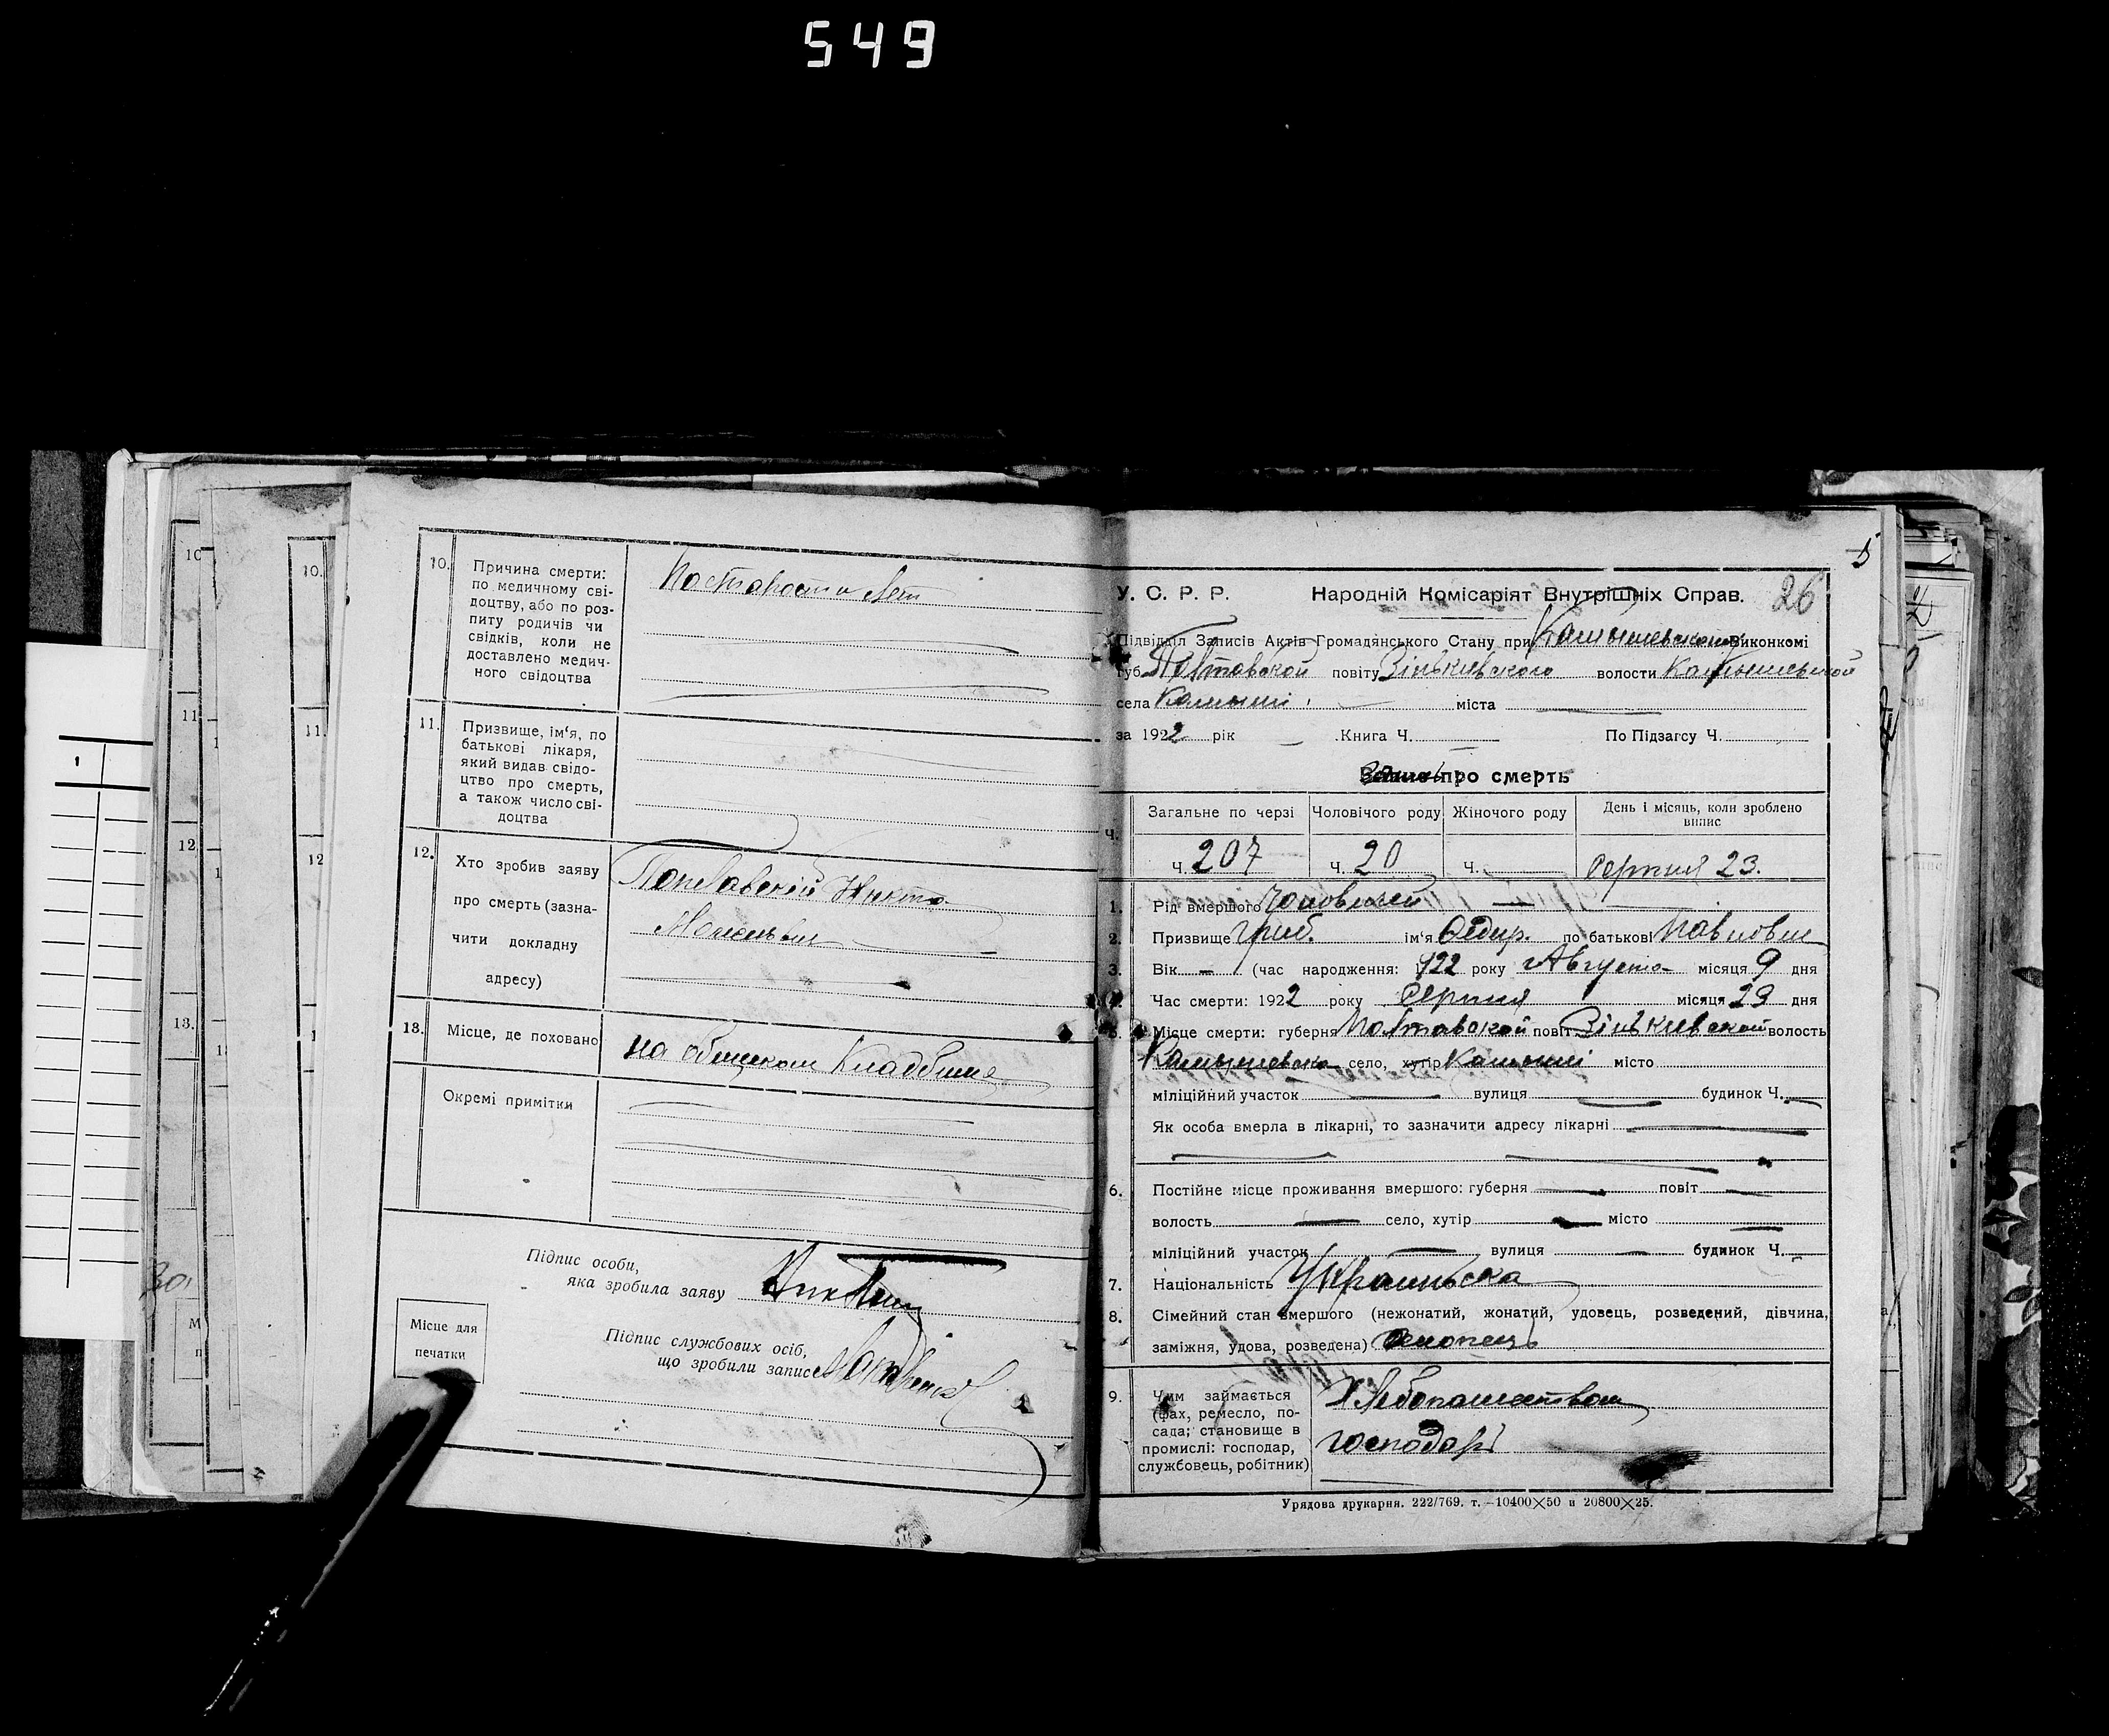 549
10.
Причина смерти:
по медичному сві-
доцтву, або по роз-
питу родичів чи
свідків, коли не
доставлено медич-
ного свідоцтва
11.
Призвище, ім'я, по
батькові лікаря,
який видав свідо-
цтво про смерть,
а також число сві-
доцтва
12.
Хто зробив заяву
про смерть (зазна-
чити докладну
адресу)
13.
Місце, де поховано
на общем Кладбище
Окремі примітки
Підпис особи,
яка зробила заяву
Місце для
печатки
Підпис службових осіб,
що зробили запис
5
26
У. С. Р. Р. Народній Комісаріят Внутрішніх Справ.
Підвідділ Записів Актів Громадянського Стану при Виконкомі
губ. Полтавской повіту Зіньківского волости Камышевской
села Камыші міста
за 1922 рік Книга Ч. По Підзагсу Ч.
про смерть
Загальне по черзі Чоловічого роду Жіночого роду День і місяць, коли зроблено
випис
ч.
Ч. 207 Ч. 20 Ч. Серпня 23.
1. Рід вмершого
2. Призвище Гриб. ім'я Федир. по батькові Павлович
3. Вік — (час народження: 1922 року Августа місяця 9 дня
4. Час смерти: 1922 року Серпня місяця 23 дня
5. Місце смерти: губерня Полтавской повіт Зіньківской волость
Камышевска село, хутір Камыші місто
міліційний участок вулиця будинок Ч.
Як особа вмерла в лікарні, то зазначити адресу лікарні
6. Постійне місце проживання вмершого: губерня повіт
волость село, хутір місто
міліційний участок вулиця будинок Ч.
7. Національність Украинська
8. Сімейний стан вмершого (нежонатий, жонатий, удовець, розведений, дівчина,
заміжня, удова, розведена)
9. Чим займається
(фах, ремесло, по-
сада; становище в
промислі: господар,
службовець, робітник)
Хлебопашеством
господарі
Урядова друкарня. 222/769. т.—10400×50 и 20800×25.